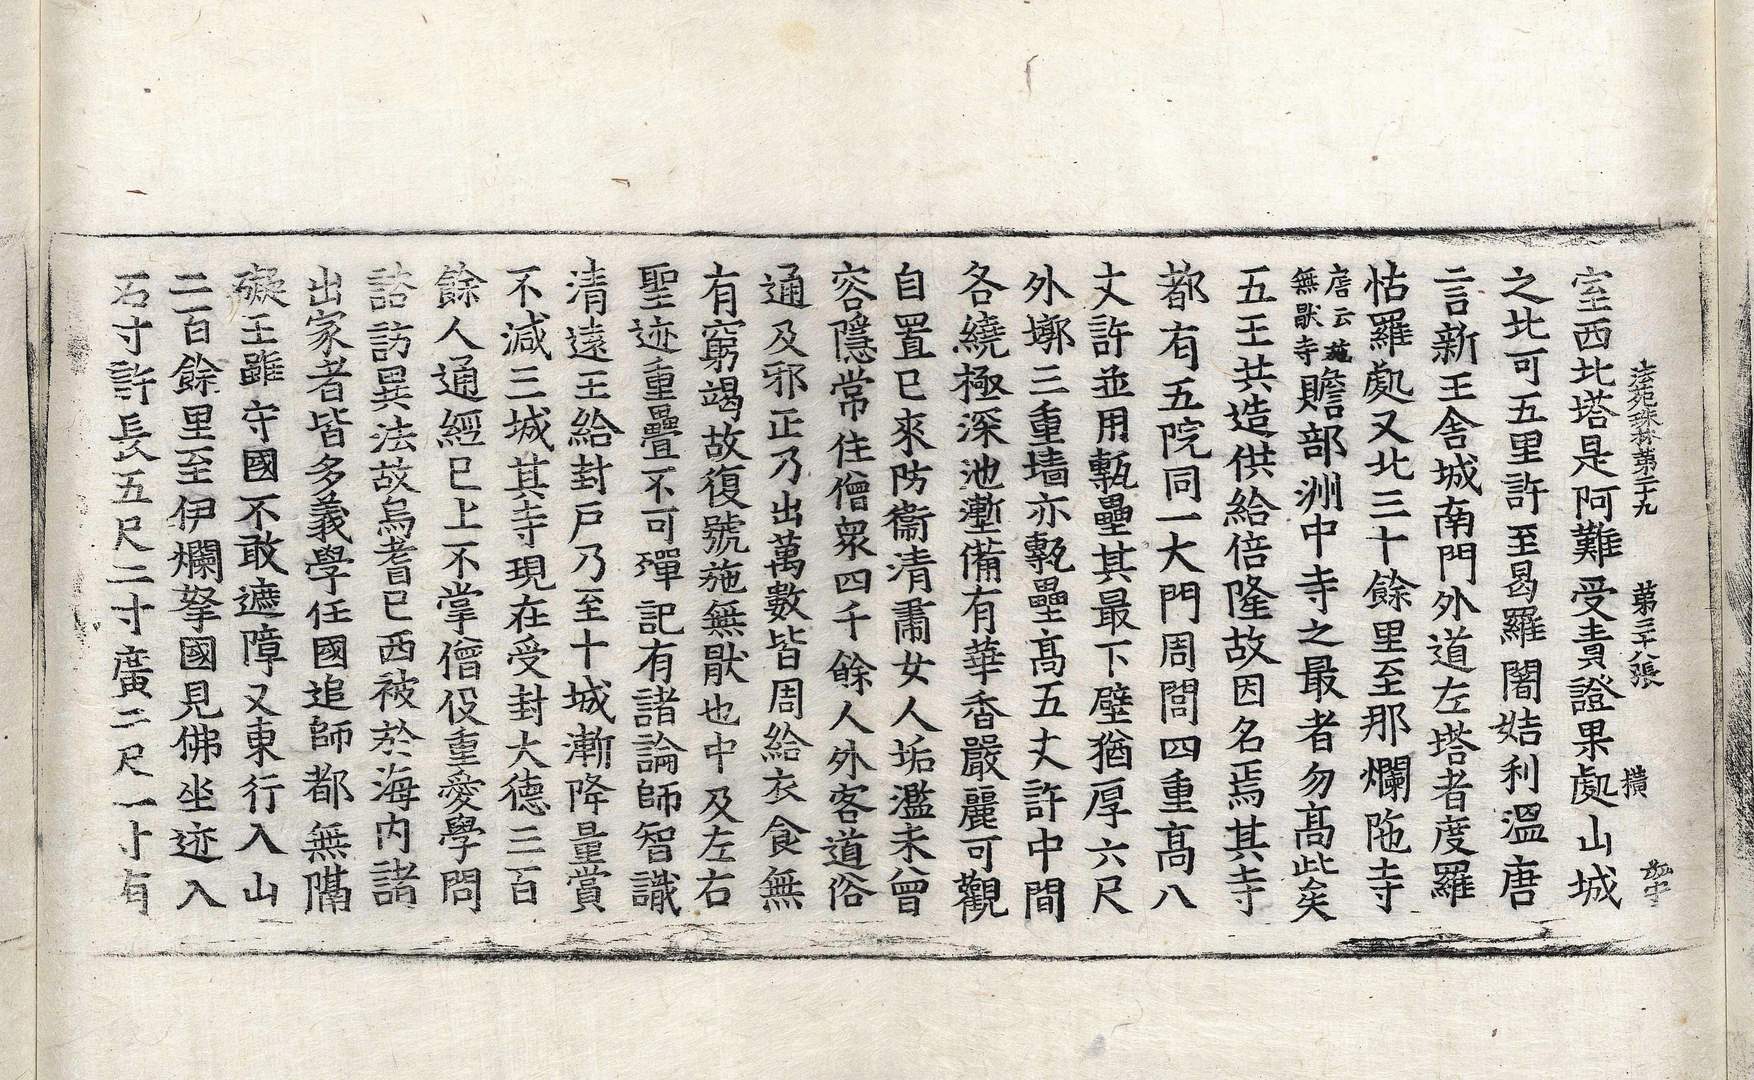 法苑珠林第二十九　第三十八張　橫
室西北塔是阿難受責證果處山城
之北可五里許至曷羅闍姞利溫唐
言新王舍城南門外道左塔者度羅
怙羅處又北三十餘里至那爛陁寺
唐云施無猒寺贍部洲中寺之最者勿高此矣
五王共造供給倍隆故因名焉其寺
都有五院同一大門周閭四重高八
丈許並用甎壘其最下壁猶厚六尺
外墎三重墻亦甎壘高五丈許中間
各繞極深池塹備有華香嚴麗可觀
自置已來防衞清肅女人垢濫未曾
容隱常住僧衆四千餘人外客道俗
通及邪正乃出萬數皆周給衣食無
有窮竭故復號施無猒也中及左右
聖迹重疊不可殫記有諸論師智識
清遠王給封戶乃至十城漸降量賞
不減三城其寺現在受封大德三百
餘人通經已上不掌僧役重愛學問
諮訪異法故烏耆已西被於海內諸
出家者皆多義學任國追師都無隔
礙王雖守國不敢遮障又東行入山
二百餘里至伊爛拏國見佛坐迹入
石寸許長五尺二寸廣二尺一寸有